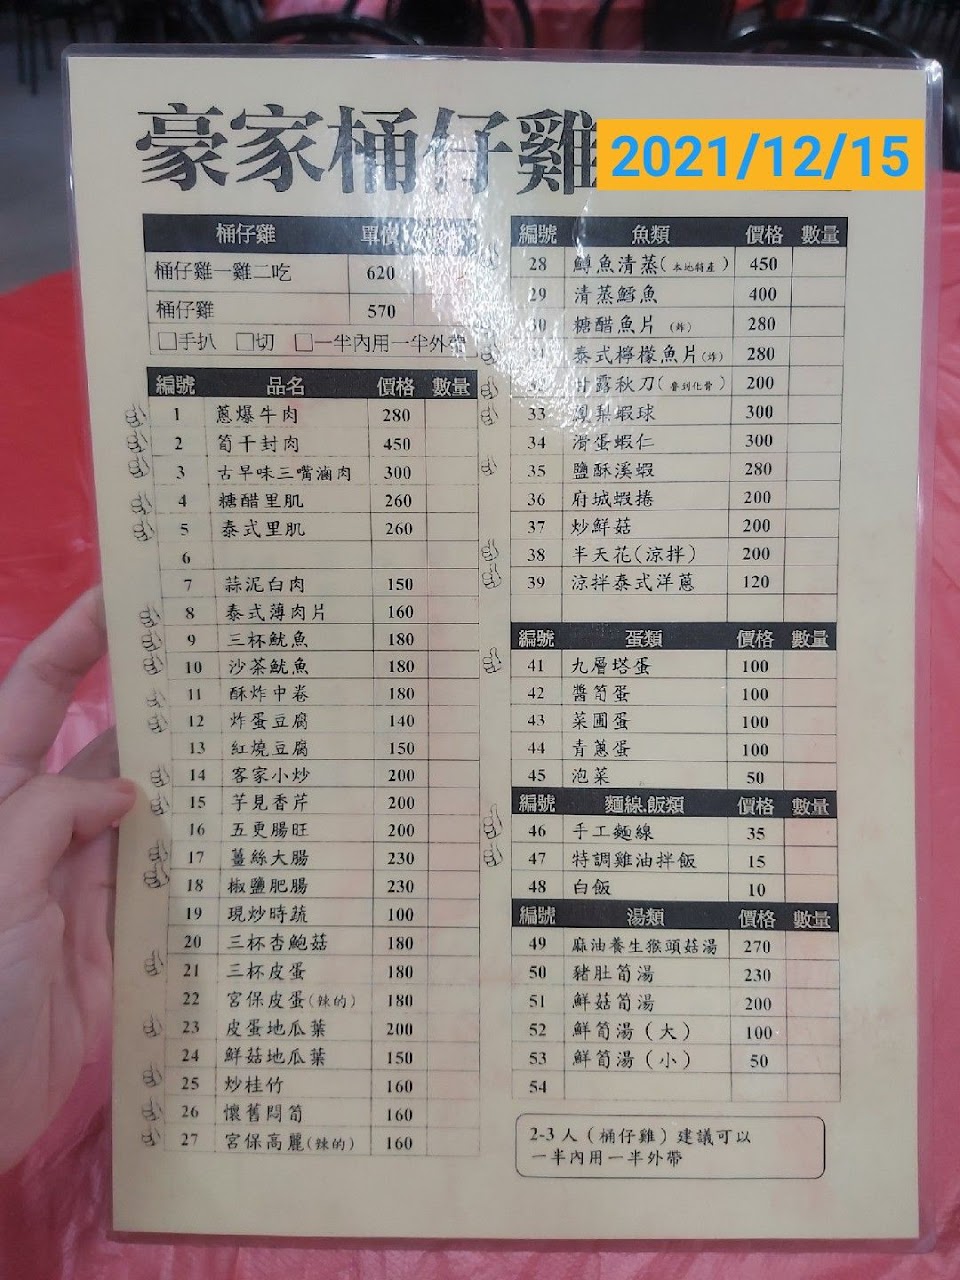 豪家桶仔雞
2021/12/15
桶仔雞 單價
桶仔雞一雞二吃 620
桶仔雞 570
□手扒 □切 □一半內用一半外帶
編號 品名 價格 數量
1 蔥爆牛肉 280
2 筍干封肉 450
3 古早味三嘴滷肉 300
4 糖醋里肌 260
5 泰式里肌 260
6
7 蒜泥白肉 150
8 泰式薄肉片 160
9 三杯魷魚 180
10 沙茶魷魚 180
11 酥炸中卷 180
12 炸蛋豆腐 140
13 紅燒豆腐 150
14 客家小炒 200
15 芋見香芹 200
16 五更腸旺 200
17 薑絲大腸 230
18 椒鹽肥腸 230
19 現炒時蔬 100
20 三杯杏鮑菇 180
21 三杯皮蛋 180
22 宮保皮蛋(辣的) 180
23 皮蛋地瓜葉 200
24 鮮菇地瓜葉 150
25 炒桂竹 160
26 懷舊悶筍 160
27 宮保高麗(辣的) 160
編號 魚類 價格 數量
28 鱒魚清蒸(本地特產) 450
29 清蒸鱈魚 400
30 糖醋魚片 (炸) 280
31 泰式檸檬魚片(炸) 280
甘露秋刀(魯到化骨) 200
33 鳳梨蝦球 300
34 滑蛋蝦仁 300
35 鹽酥溪蝦 280
36 府城蝦捲 200
37 炒鮮菇 200
38 半天花(涼拌) 200
39 涼拌泰式洋蔥 120
編號 蛋類 價格 數量
41 九層塔蛋 100
42 醬筍蛋 100
43 菜圃蛋 100
44 青蔥蛋 100
45 泡菜 50
編號 麵線.飯類 價格 數量
46 手工麵線 35
47 特調雞油拌飯 15
48 白飯 10
編號 湯類 價格 數量
49 麻油養生猴頭菇湯 270
50 豬肚筍湯 230
51 鮮菇筍湯 200
52 鮮筍湯(大) 100
53 鮮筍湯(小) 50
54
2-3人(桶仔雞)建議可以
一半內用一半外帶